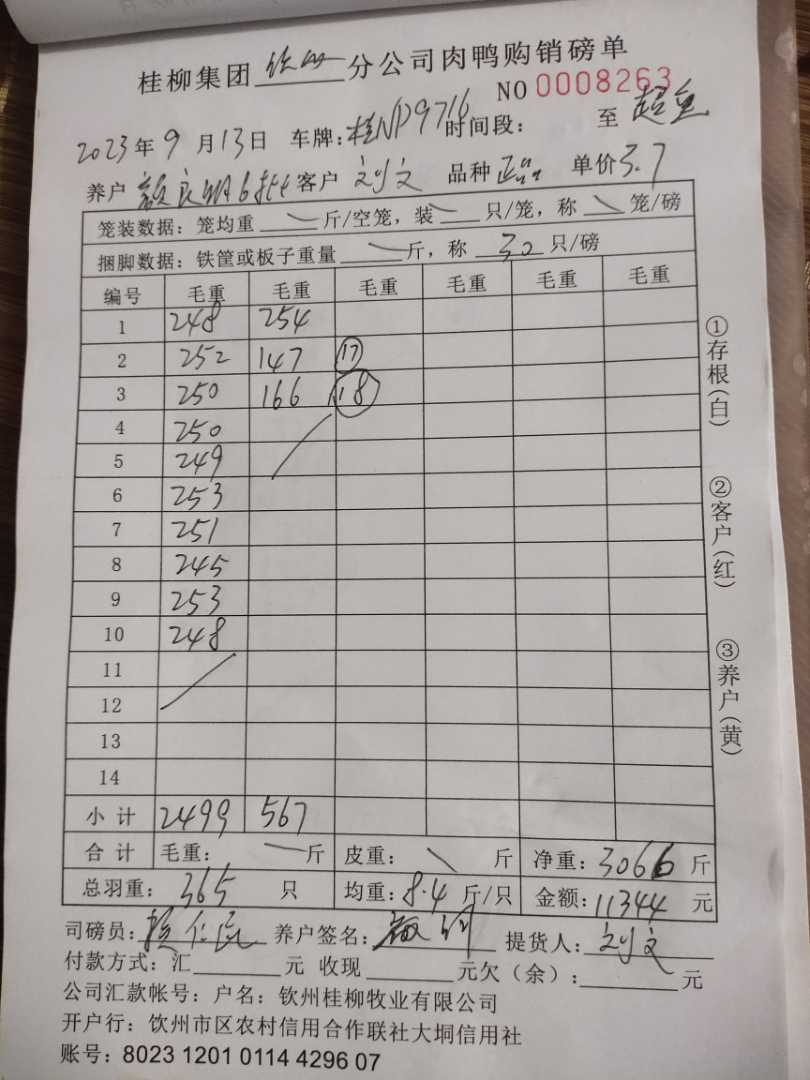 桂柳集团 钦州 分公司肉鸭购销磅单
NO 0008263
2023年9月13日 车牌:桂NP9716 时间段: 至
养户 客户 刘文 品种 正品 单价3.7
笼装数据:笼均重 斤/空笼,装 只/笼,称 笼/磅
捆脚数据:铁筐或板子重量 斤,称 30 只/磅
编号 毛重 毛重 毛重 毛重 毛重 毛重
1 248 254
2 252 147 17
3 250 166 18
4 250
5 249
6 253
7 251
8 245
9 253
10 248
11
12
13
14
小计 2499 567
合计 毛重: 斤 皮重: 斤 净重:3066 斤
总羽重: 365 只 均重:8.4 斤/只 金额:11344 元
司磅员: 养户签名: 提货人:刘文
付款方式:汇 元 收现 元欠(余): 元
公司汇款帐号:户名:钦州桂柳牧业有限公司
开户行:饮州市区农村信用合作联社大垌信用社
账号:8023 1201 0114 4296 07
①存根(白)
②客户(红)
③养户(黄)